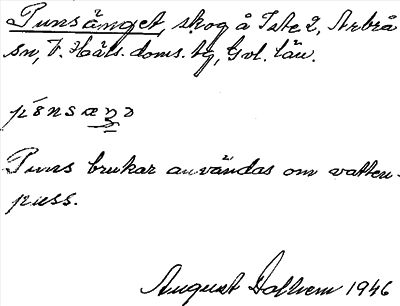 Punsänget, skog å Tste 2, Arbrå
sn, V. Häls. doms. tg, Gvl. län.
pónsæŋə
Puns brukar användas om vatten-
puss.
August Dalhem 1946